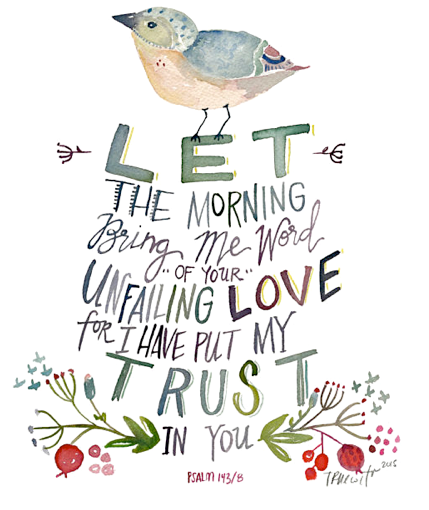 LET
THE MORNING
Bring Me Word
"OF YOUR"
UNFAILING LOVE
for I HAVE PUT MY
TRUST
IN YOU
PSALM 143/8
2015